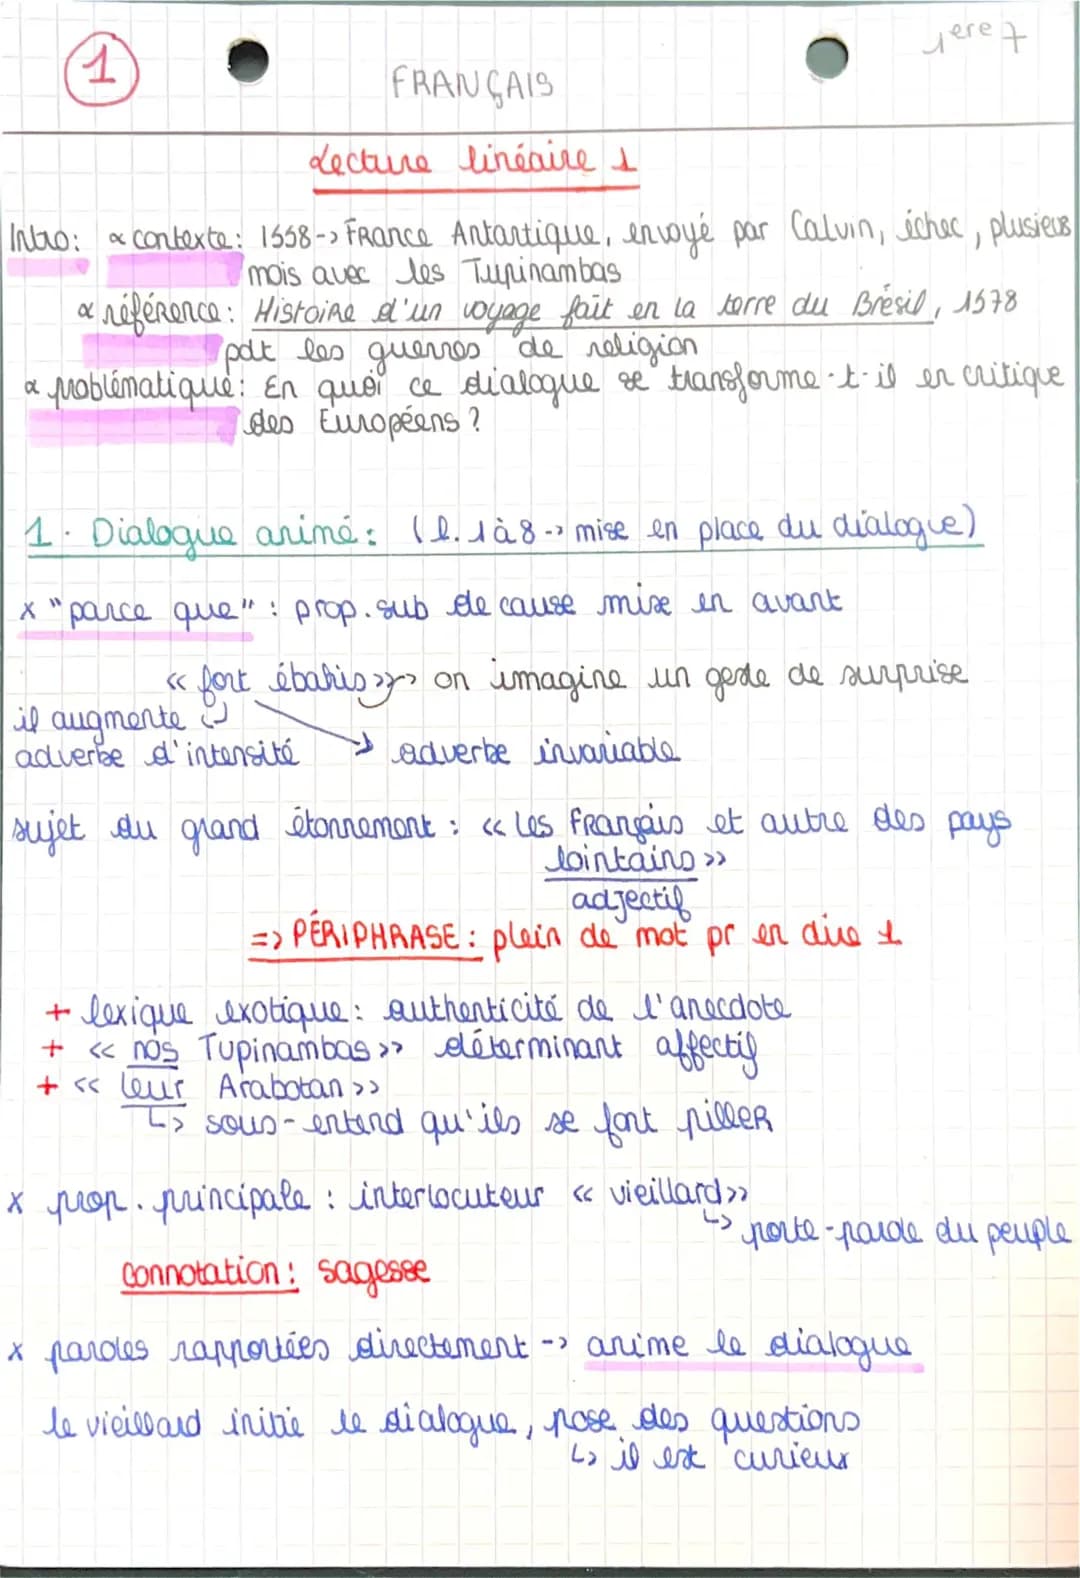 1
1ere 7
FRANÇAIS
Lecture linéaire 1
Intro: ∝ contexte: 1558-> France Antartique, envoyé par Calvin, échec, plusieurs
mois avec les Tupinambas
∝ référence: Histoire d'un voyage fait en la terre du Brésil, 1578
pdt les guerres de religion
∝ problématique: En quoi ce dialogue se transforme-t-il en critique
des Européens ?
1. Dialogue animé: (l. 1 à 8 -> mise en place du dialogue)
x "parce que" : prop. sub de cause mise en avant
« fort ébahis »-> on imagine un geste de surprise
il augmente
adverbe d'intensité -> adverbe invariable
sujet du grand étonnement : « les Français et autre des pays
lointains »
adjectif
=> PÉRIPHRASE : plein de mot pr en dire 1
+ lexique exotique : authenticité de l'anecdote
+ « nos Tupinambas » déterminant affectif
+ « leur Arabotan »
↳ sous-entend qu'ils se font piller
x prop. principale : interlocuteur « vieillard »
↳ porte-parole du peuple
connotation : sagesse
x paroles rapportées directement -> anime le dialogue
le vieillard initie le dialogue, pose des questions
↳ il est curieux